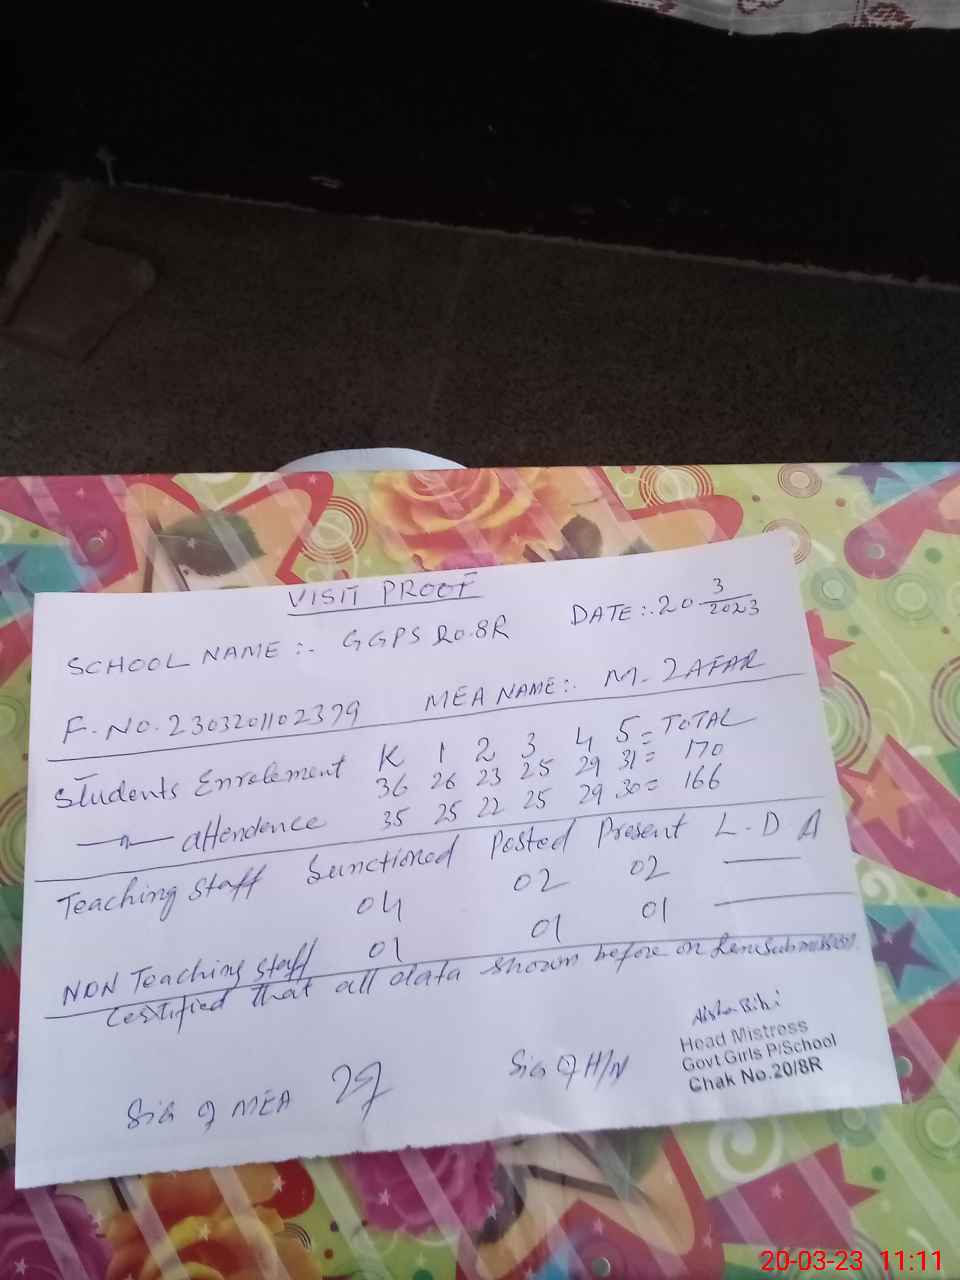 VISIT PROOF
SCHOOL NAME :- GGPS 20.8R DATE :- 20 3/2023
F-NO. 2303201102379 MEA NAME :- M. ZAFAR
Students Enrolement K 1 2 3 4 5 = TOTAL
36 26 23 25 29 31 = 170
—"— attendence 35 25 22 25 29 30 = 166
Teaching Staff Sunctioned Posted Present L-D A
04 02 02 —
NON Teaching Staff 01 01 01 —
Certified that all data shown before on line submission.
Sig of MEA Sig of H/M Aisha Bibi
Head Mistress
Govt Girls P/School
Chak No.20/8R
20-03-23 11:11